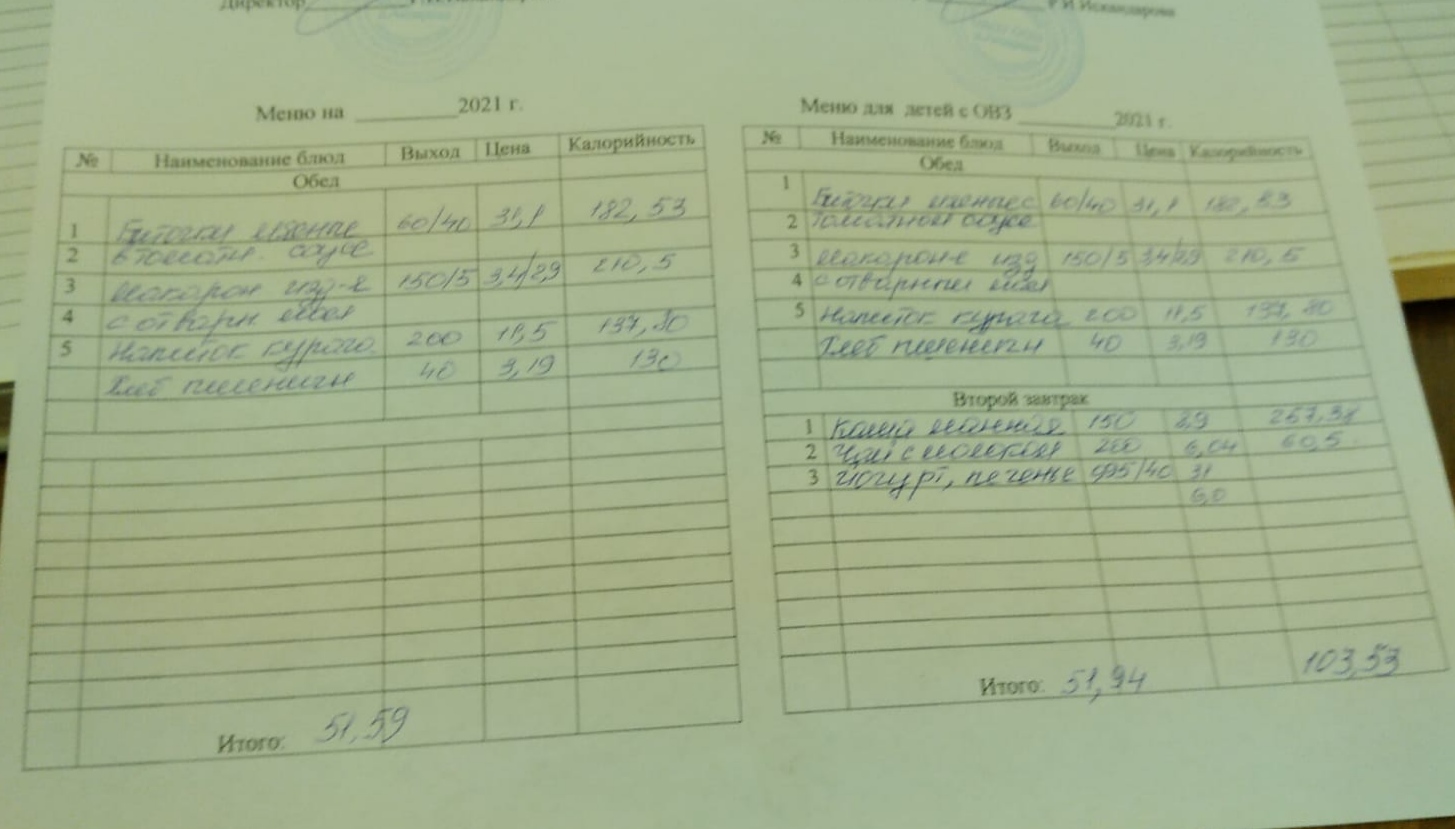 Директор
Р И Искандарова
Меню на ________ 2021 г.
№ Наименование блюд Выход Цена Калорийность
Обед
1 Биточки мясные 60/40 31,1 182,53
2 в томатн. соусе
3 макарон изд-я 150/5 3,4/2,9 210,5
4 с отварн.
5 Напиток курага 200 11,5 137,80
Хлеб пшеничн 40 3,19 130
Итого: 51,59
Меню для детей с ОВЗ ________ 2021 г.
№ Наименование блюд Выход Цена Калорийность
Обед
1 Биточки мясные с 60/40 31,1 182,53
2 томатном соусе
3 макарон-е изд 150/5 3,4/2,9 210,5
4 с отварным
5 Напиток курага 200 11,5 137,80
Хлеб пшеничн 40 3,19 130
Второй завтрак
1 Каша манная 150 257,38
2 Чай с молоком 200 6,04 60,5
3 Йогурт, печенье /40 31
6,0
Итого: 51,94 103,53